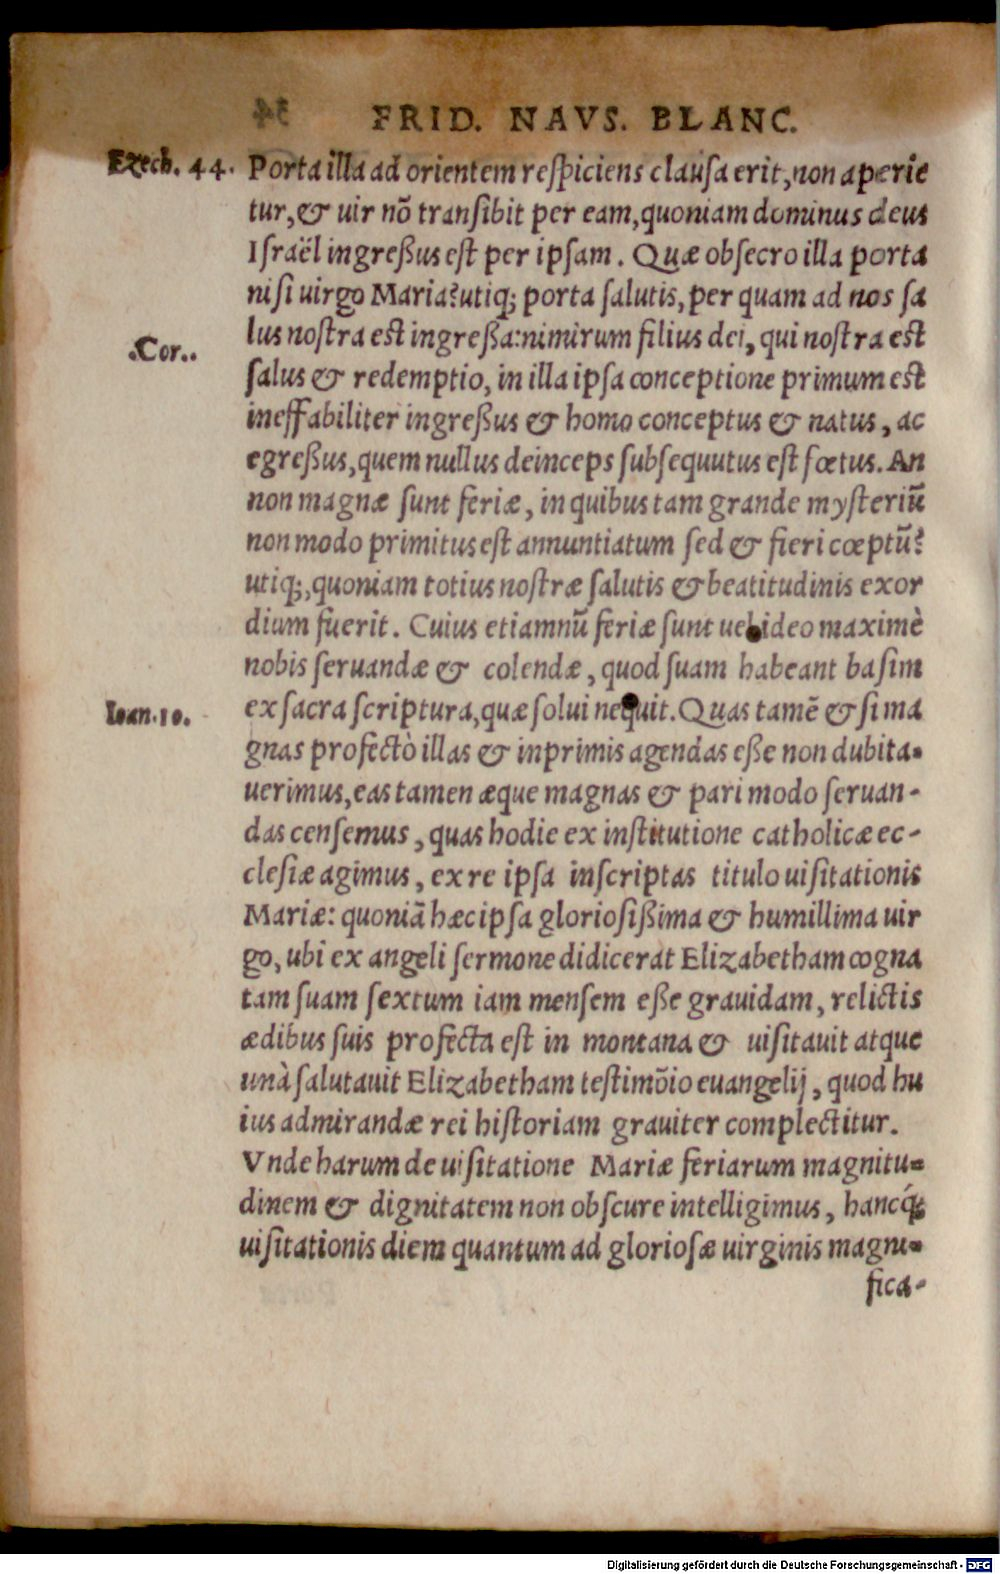 FRID. NAVS. BLANC.
Ezech. 44. Porta illa ad orientem respiciens clausa erit, non aperie
tur, & uir nō transibit per eam, quoniam dominus deus
Israël ingreßus est per ipsam. Quæ obsecro illa porta
nisi uirgo Maria? utiq; porta salutis, per quam ad nos sa
lus nostra est ingreßa: nimirum filius dei, qui nostra est
.Cor..
salus & redemptio, in illa ipsa conceptione primum est
ineffabiliter ingreßus & homo conceptus & natus, ac
egreßus, quem nullus deinceps subsequutus est fœtus. An
non magnæ sunt feriæ, in quibus tam grande mysteriū
non modo primitus est annuntiatum sed & fieri cœptū?
utiq;, quoniam totius nostræ salutis & beatitudinis exor
dium fuerit. Cuius etiamnū feriæ sunt uel ideo maximè
nobis seruandæ & colendæ, quod suam habeant basim
Ioan. 10. ex sacra scriptura, quæ solui nequit. Quas tamē & si ma
gnas profectò illas & inprimis agendas eße non dubita-
uerimus, eas tamen æque magnas & pari modo seruan-
das censemus, quas hodie ex institutione catholicæ ec-
clesiæ agimus, ex re ipsa inscriptas titulo uisitationis
Mariæ: quoniā hæc ipsa gloriosißima & humillima uir
go, ubi ex angeli sermone didicerat Elizabetham cogna
tam suam sextum iam mensem eße grauidam, relictis
ædibus suis profecta est in montana & uisitauit atque
unà salutauit Elizabetham testimōio euangelij, quod hu
ius admirandæ rei historiam grauiter complectitur.
Vnde harum de uisitatione Mariæ feriarum magnitu-
dinem & dignitatem non obscure intelligimus, hancq́;
uisitationis diem quantum ad gloriosæ uirginis magni-
fica-
Digitalisierung gefördert durch die Deutsche Forschungsgemeinschaft - DFG